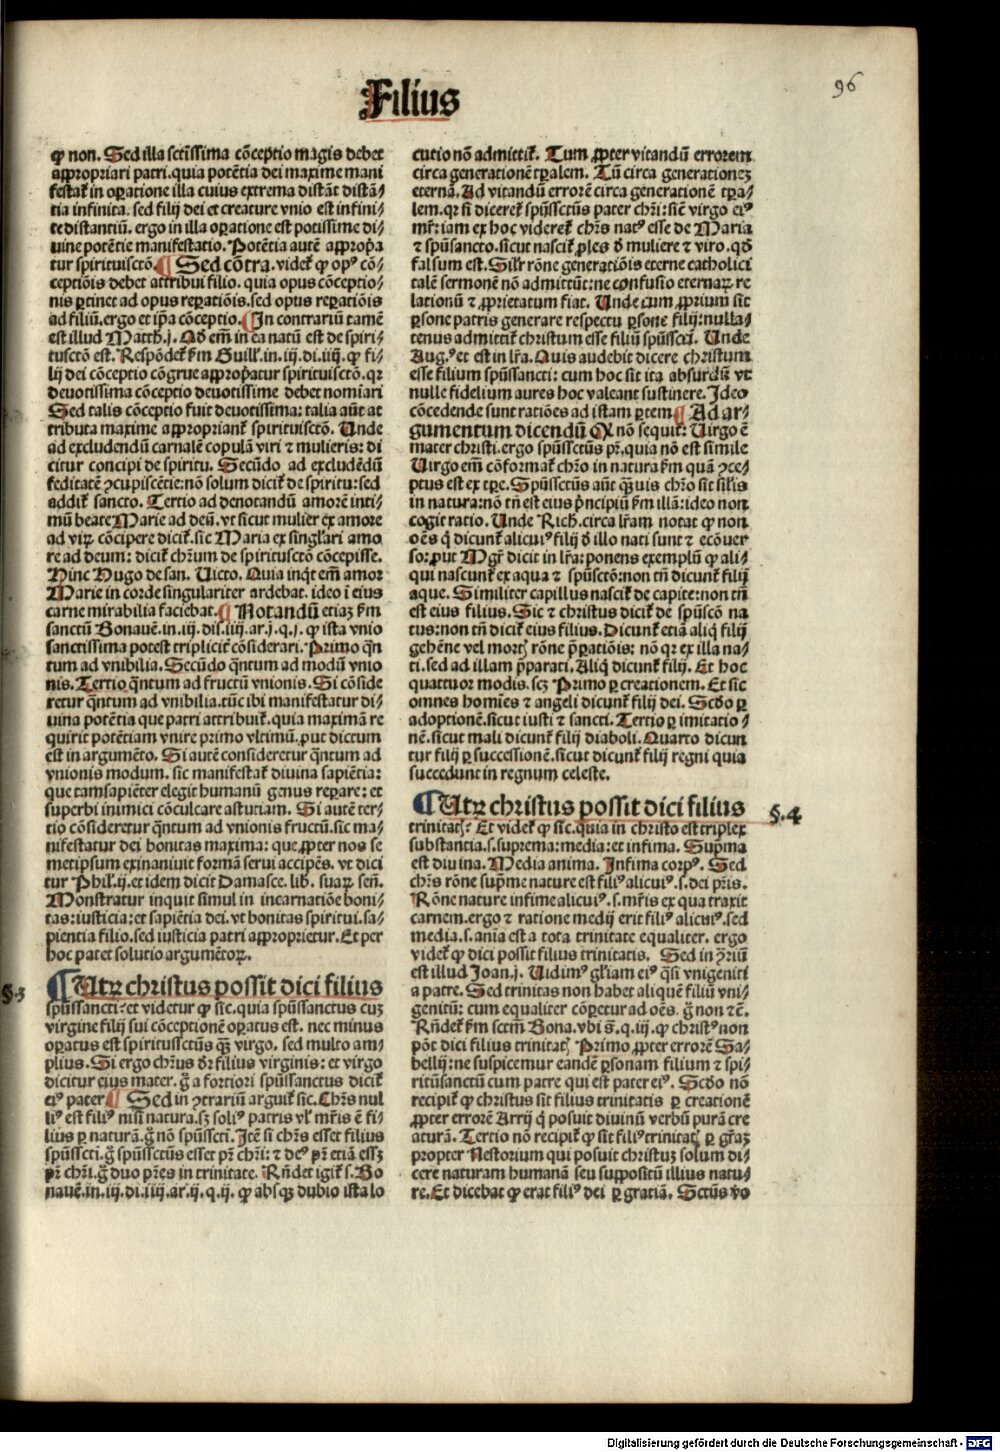 Filius
96
ꝙ non. Sed illa sctissima cōceptio magis debet
appropriari patri. quia potētia dei maxime mani
festaꝶ in oꝑatione illa cuius extrema distāt distā⸗
tia infinita. sed filij dei et creature vnio est infini⸗
te distantiū. ergo in illa oꝑatione est potissime di⸗
uine potētie manifestatio. Potētia autē appropa
tur spirituisctō. ¶ Sed cōtra. videt ꝙ opꝰ cō⸗
ceptiōis debet attribui filio. quia opus cōceptio⸗
nis ꝑtinet ad opus reꝑatiōis. sed optus reꝑatiōis
ad filiū. ergo et ipa cōceptio. ¶ In contrariū tamē
est illud Matth. j. Qd em̄ in ea natū est de spiri⸗
tusctō est. Respōdet fm Guill̓. in. iij. di. iiij. ꝙ fi⸗
lij dei cōceptio cōgrue appropatur spirituisctō. qꝛ
deuotissima cōceptio deuotissime debet nomiari
Sed talis cōceptio fuit deuotissima: talia aūt at
tributa maxime appropriant spirituisctō. Unde
ad excludendū carnalē copulā viri et mulieris: di
citur concipi de spiritu. Secūdo ad excludēdū
feditatē ꝯcupiscētie: nō solum dicit de spiritu: sed
addit sancto. Tertio ad denotandū amorē inti⸗
mū beate Marie ad deū. vt sicut mulier ex amore
ad viꝝ cōcipere dicit. sic Maria ex singl̓ari amo
re ad deum: dicit chr̄um de spiritusctō cōcepisse.
Hinc Hugo de san. Uicto. Quia inqt em̄ amor
Marie in corde singulariter ardebat. ideo ī eius
carne mirabilia faciebat. ¶ Notandū etiaʒ fm
sanctū Bonauē. in. iij. dis. iiij. ar. j. q. j. ꝙ ista vnio
sanctissima potest triplicit cōsiderari. Primo qn̄
tum ad vnibilia. Secūdo qn̄tum ad modū vnio
nis. Tertio qn̄tum ad fructū vnionis. Si cōside
retur qn̄tum ad vnibilia. tūc ibi manifestatur di⸗
uina potētia que patri attribuit. quia maximā re
quirit potētiam vnire primo vltimū. ꝓut dictum
est in argumēto. Si autē consideretur qn̄tum ad
vnionis modum. sic manifestat diuina sapiētia:
que tam sapiēter elegit humanū genus reꝑare: et
superbi inimici cōculcare astutiam. Si autē ter⸗
tio cōsideretur qn̄tum ad vnionis fructū. sic ma⸗
nifestatur dei bonitas maxima: que ꝓpter nos se
metipsum exinaniuit formā serui accipēs. vt dici
tur Phil̓. ij. et idem dicit Damasce. lib. suaꝝ sen̄.
Monstratur inquit simul in incarnatiōe boni⸗
tas: iusticia: et sapiētia dei. vt bonitas spiritui. sa⸗
pientia filio. sed iusticia patri approprietur. Et per
hoc patet solutio argumētoꝝ.
§. 3
¶ Utꝝ christus possit dici filius
spūssancti: et videtur ꝙ sic. quia spūssanctus cuʒ
virgine filij sui cōceptionē oꝑatus est. nec minus
oꝑatus est spiritussctūs qʒ virgo. sed multo am⸗
plius. Si ergo chr̄us dr filius virginis: et virgo
dicitur eius mater. g̓ a fortiori spūssanctus dicit
eiꝰ pater. ¶ Sed in ꝯtrariū arguit sic. Chr̄s nul
liꝰ est filiꝰ nisi natura. sʒ soliꝰ patris vl̓ mr̄is ē fi⸗
lius ꝑ naturā. g̓ nō spūsscti. Itē si chr̄s esset filius
spūsscti. g̓ spūssctūs esset pr̄ chr̄i: ⁊ deꝰ pr̄ etiā essʒ
pr̄ chr̄i. g̓ duo pr̄es in trinitate. Rn̄det igit s. Bo
nauē. in. iij. di. iiij. ar. ij. q. ij. ꝙ absqʒ dubio ista lo
cutio nō admittit. Tum ꝓpter vitandū errorem
circa generationē tꝑalem. Tū circa generationeʒ
eternā. Ad vitandū errorē circa generationē tꝑa⸗
lem. qꝛ si diceret spūssctūs pater chr̄i: sic̄ virgo eiꝰ
mr̄: iam ex hoc videret chr̄s natꝰ esse de Maria
⁊ spūsancto. sicut nascit ꝓles d̓ muliere ⁊ viro. qd̓
falsum est. Silr rōne generatiōis eterne catholici
talē sermonē nō admittūt: ne confusio eternaꝝ re
lationū ⁊ ꝓprietatum fiat. Unde cum ꝓprium sit
ꝑsone patris generare respectu ꝑsone filij: nulla⸗
tenus admittit christum esse filiū spūsscti. Unde
Aug.ꝰ et est in lr̄a. Quis audebit dicere christum
esse filium spūssancti: cum hoc sit ita absurdū vt
nulle fidelium aures hoc valeant sustinere. Ideo
cōcedende sunt ratiōes ad istam ꝑtem. ¶ Ad ar⸗
gumentum dicendū ꝙ nō sequit: Uirgo ē
mater christi. ergo spūssctūs pr̄. quia nō est simile
Uirgo em̄ cōformat chr̄o in natura fm quā ꝯce⸗
ptus est ex tꝑe. Spūssctūs aūt quis chr̄o sit sil̓is
in natura: nō tn̄ est eius pncipiū fm illā: ideo non
cogit ratio. Unde Rich. circa lr̄am notat ꝙ non
oēs q̇ dicunt alicuiꝰ filij d̓ illo nati sunt ⁊ ecōuer
so: ꝓut Mgr̄ dicit in lr̄a: ponens exemplū ꝙ ali⸗
qui nascunt ex aqua ⁊ spūsctō: non tn̄ dicunt filij
aque. Similiter capillus nascit de capite: non tn̄
est eius filius. Sic ⁊ christus dicit de spūscō na
tus: non tn̄ dicit eius filius. Dicunt etiā aliq̇ filij
gehēne vel mortꝭ rōne ppatiōis: nō qꝛ ex illa na⸗
ti. sed ad illam pparati. Aliq̇ dicunt filij. Et hoc
quattuor modis. scʒ Primo ꝑ creationem. Et sic
omnes homīes ⁊ angeli dicunt filij dei. Scd̓o ꝑ
adoptionē. sicut iusti ⁊ sancti. Tertio ꝑ imitatio⸗
nē. sicut mali dicunt filij diaboli. Quarto dicun
tur filij ꝑ successionē. sicut dicunt filij regni quia
succedunt in regnum celeste.
¶ Utꝝ christus possit dici filius
§. 4
trinitatꝭ: Et videt ꝙ sic. quia in christo est triplex
substantia. s. suprema: media: et infima. Supma
est diuina. Media anima. Infima corpꝰ. Sed
chr̄s rōne supme nature est filiꝰ alicuiꝰ. s. dei pr̄is.
Rōne nature infime alicuiꝰ. s. mr̄is ex qua traxit
carnem. ergo ⁊ ratione medij erit filiꝰ alicuiꝰ. sed
media. s. anīa est a tota trinitate equaliter. ergo
videt ꝙ dici possit filius trinitatis. Sed in ꝯriū
est illud Joan. j. Uidimꝰ gl̓iam eiꝰ qsi vnigeniti
a patre. Sed trinitas non habet aliquē filiū vni⸗
genitū: cum equaliter cōꝑetur ad oēs. g̓ non ⁊c̄.
Rn̄det fm sctm̄ Bona. vbi s̄. q. iij. ꝙ christꝰ non
pōt dici filius trinitatꝭ Primo ꝓpter errorē Sa⸗
bellij: ne suspicemur eandē ꝑsonam filium ⁊ spi⸗
ritūsanctū cum patre qui est pater eiꝰ. Scd̓o nō
recipit ꝙ christus sit filius trinitatis ꝑ creationē
ꝓpter errorē Arrij q̇ posuit diuinū verbū purā cre
aturā. Tertio nō recipit ꝙ sit filiꝰ trinitatꝭ ꝑ gr̄aʒ
propter Nestorium qui posuit christuʒ solum di⸗
cere naturam humanā seu suppositū illius natu⸗
re. Et dicebat ꝙ erat filiꝰ dei ꝑ gratiā. Sctūs v̓o
Digitalisierung gefördert durch die Deutsche Forschungsgemeinschaft - DFG